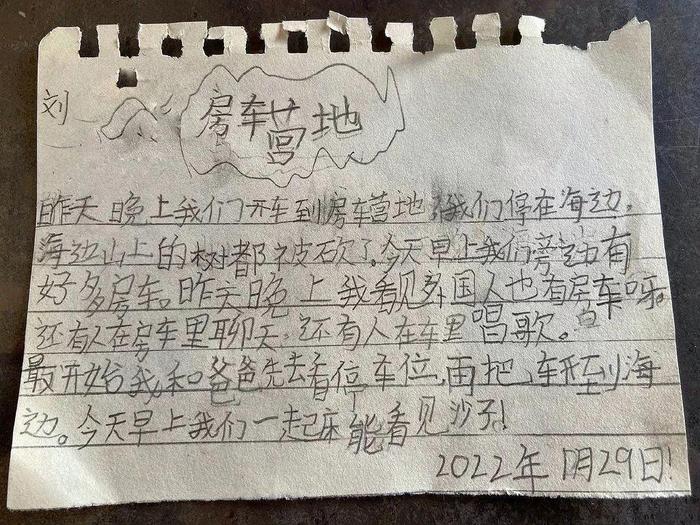 刘
房车营地
昨天晚上我们开车到房车营地,我们停在海边。
海边山上的树都被砍了。今天早上我们旁边有
好多房车。昨天晚上我看见外国人也有房车呀。
还有人在房车里聊天,还有人在车里唱歌。
最开始我和爸爸先去看停车位,再把车开到海
边。今天早上我们一起床能看见沙子!
2022年1月29日!